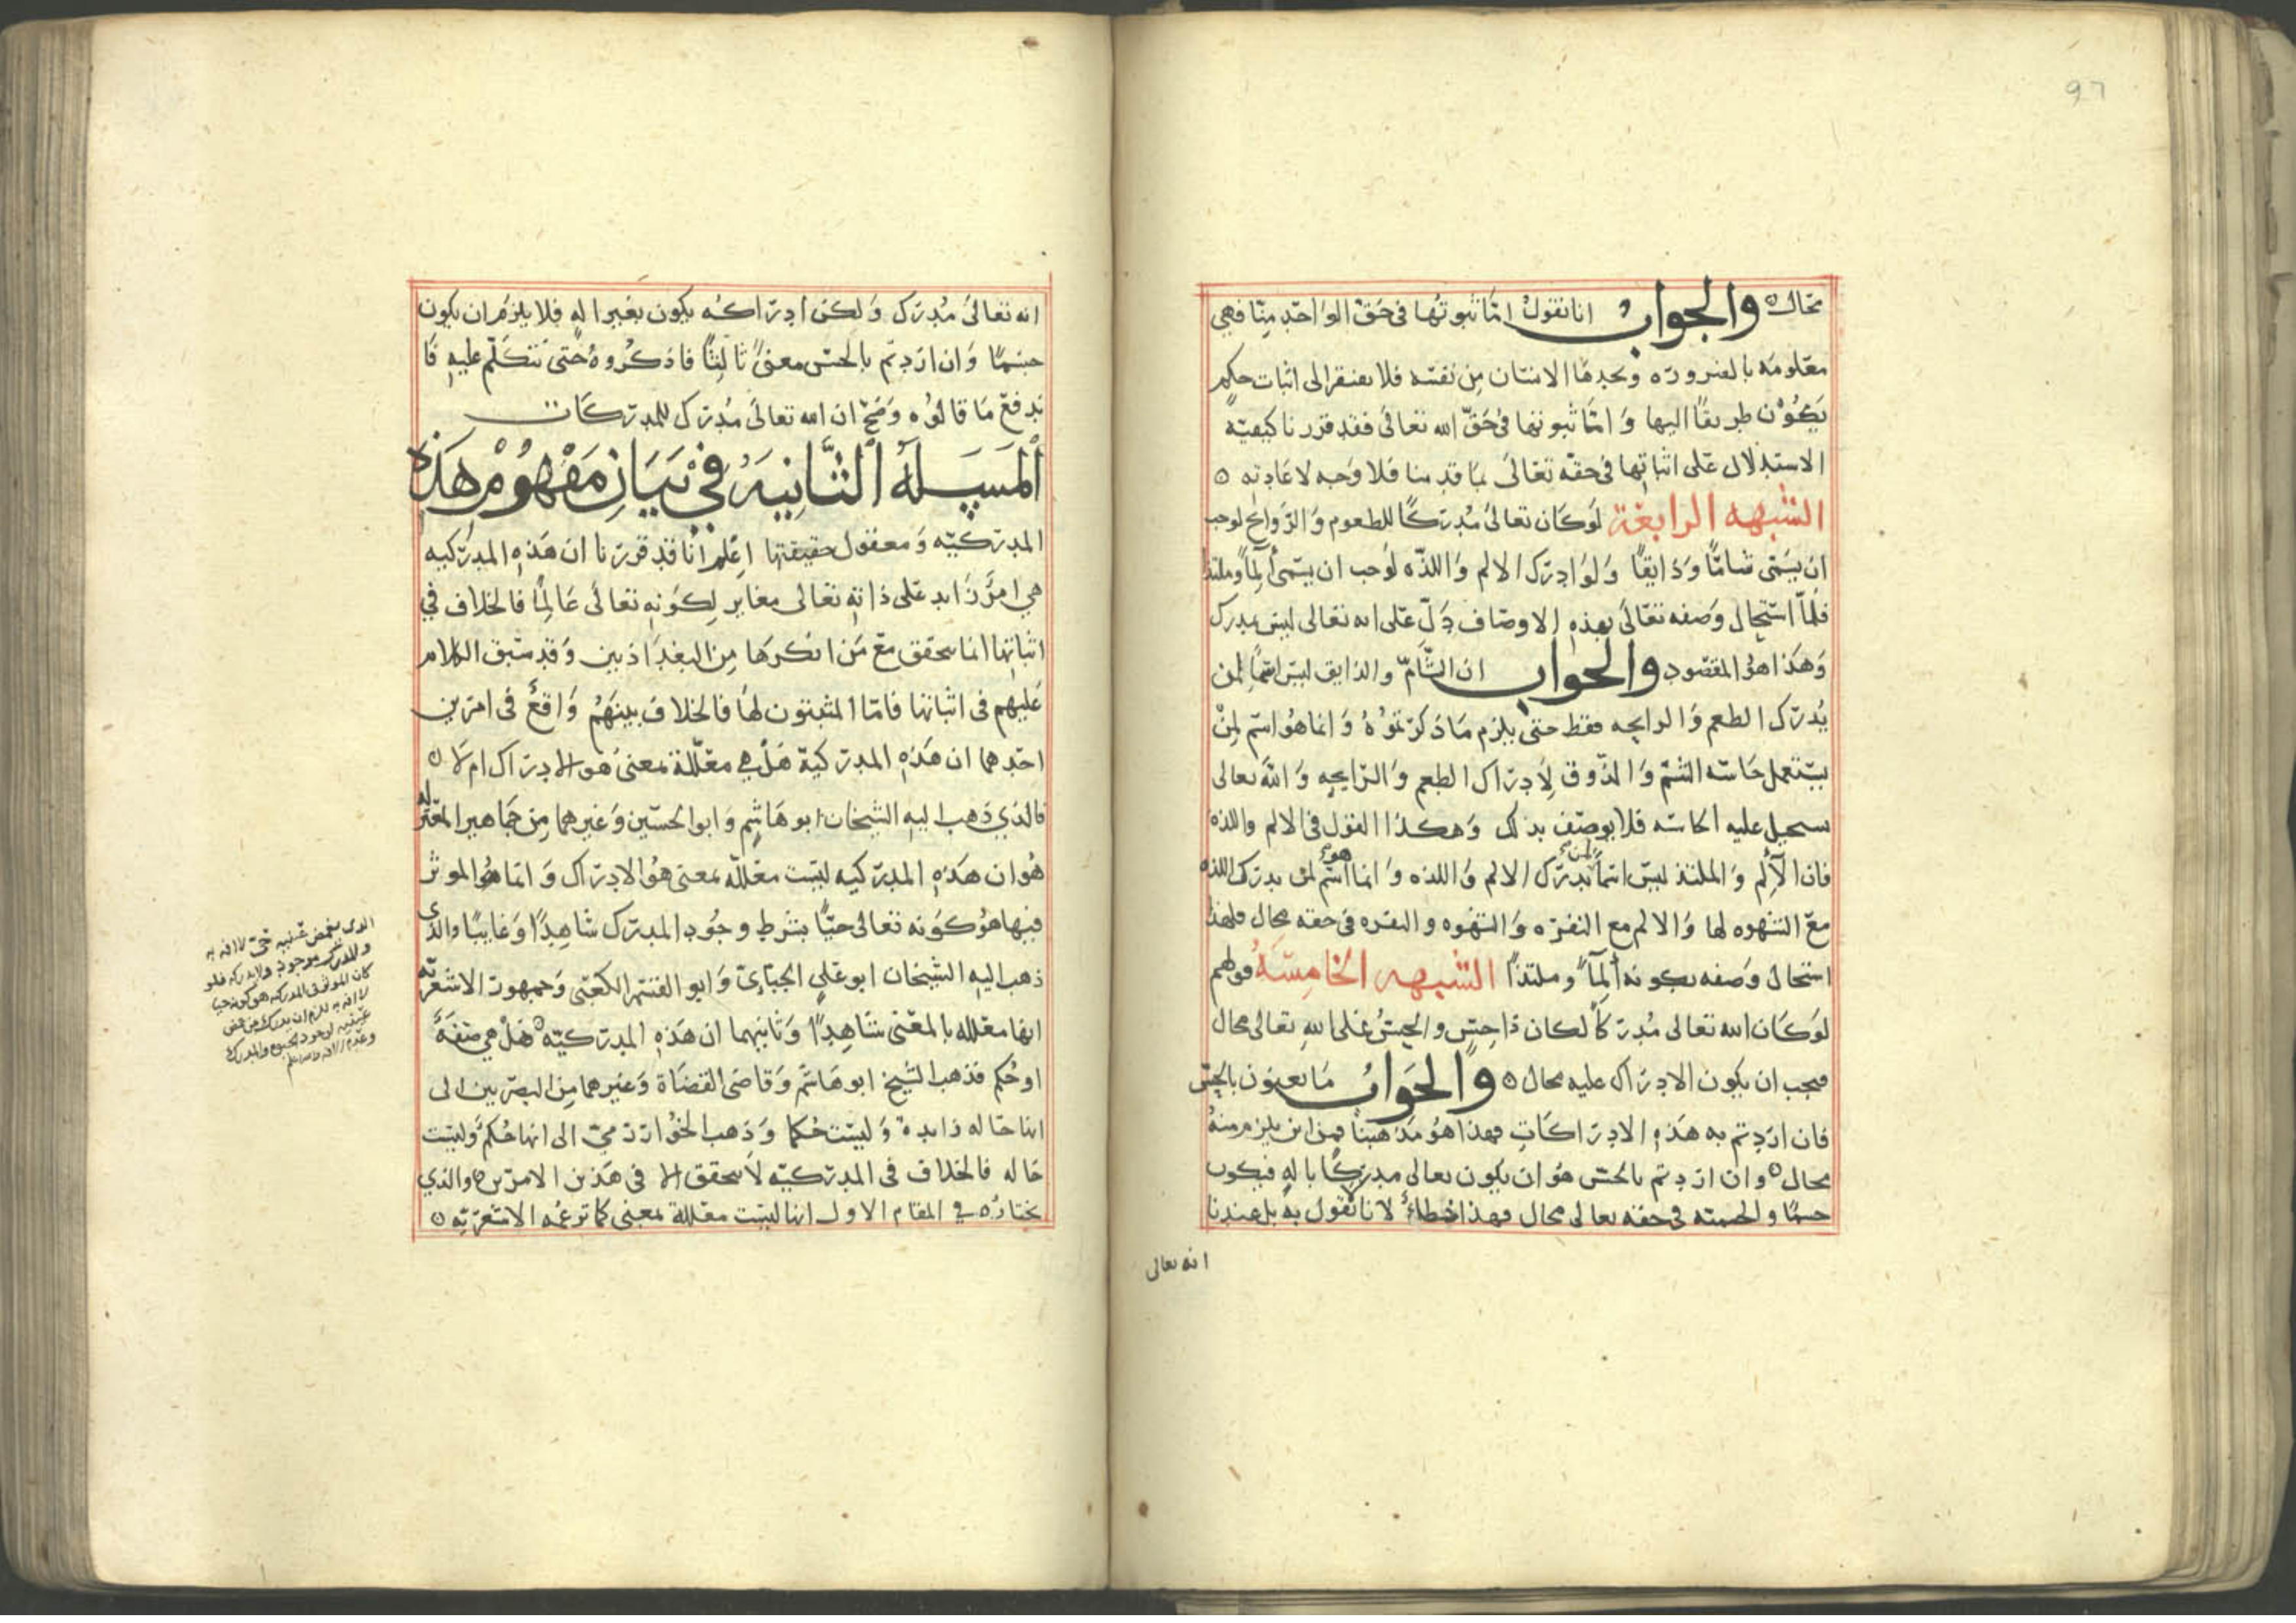 97
محال والجواب انا نقول اما ثبوتها فى حق الواحد منا فهي
معلومه بالضروره ونجدها الانسان من نفسه فلا يفتقر الى اثبات حكم
يكون طريقا اليها واما ثبوتها في حق الله تعالى فقد قررنا كيفية
الاستدلال على اثباتها في حقه تعالى بما قدمنا فلا وجه لاعادته ه
الشبهه الرابعة لو كان تعالى مدركا للطعوم والروائح لوجب
ان يسمى شاما وذايقا ولو ادرك الالم واللذه لوجب ان يسمى آلما وملتذا
فلما استحال وصفه تعالى بهذه الاوصاف دل على انه تعالى ليس بمدرك
وهذا هو المقصود والجواب ان الشام والذايق ليس اسما لمن
يدرك الطعم والرايحه فقط حتى يلزم ما ذكرتموه وانما هو اسم لمن
يستعمل حاسه الشم والذوق لادراك الطعم والرايحه والله تعالى
يستحيل عليه الحاسه فلا يوصف بذلك وهكذا القول فى الالم واللذه
فان الآلم والملتذ ليس اسما لمن يدرك الالم واللذه وانما هو اسم لمن يدرك اللذه
مع الشهوه لها والالم مع النفره والشهوه والنفره فى حقه محال فلهذا
استحال وصفه بكونه آلما وملتذا الشبهه الخامسة قولهم
لو كان الله تعالى مدركا لكان ذا حس والحس على الله تعالى محال
فيجب ان يكون الادراك عليه محال ه والجواب ما تعنون بالحس
فان اردتم به هذه الادراكات فهذا هو مذهبنا فمن اين يلزم منه
محال ه وان اردتم بالحس هو ان يكون تعالى مدركا باله فيكون
جسما والجسميه في حقه تعالى محال فهذا خطاء لانا لا نقول به بل عندنا
انه تعالى
انه تعالى مدرك ولكن ادراكه يكون بغير اله فلا يلزم ان يكون
جسما وان اردتم بالحس معنى ثالثا فاذكروه حتى نتكلم عليه فا
ندفع ما قالوه وصح ان الله تعالى مدرك للمدركات
المسىله الثانيه في بيان مفهوم هذه
المدركيه ومعقول حقيقتها اعلم انا قد قررنا ان هذه المدركيه
هي امر زايد على ذاته تعالى مغاير لكونه تعالى عالما فالخلاف في
اثباتها انما يتحقق مع من انكرها من البغداذيين وقد سبق الكلام
عليهم فى اثباتها فاما المثبتون لها فالخلاف بينهم واقع فى امرين
احدهما ان هذه المدركية هل هي معللة بمعنى هو الادراك ام لا ه
فالذي ذهب اليه الشيخان ابو هاشم وابو الحسين وغيرهما من جماهير المعتزله
هو ان هذه المدركيه ليست معلله بمعنى هو الادراك وانما هو الموثر
فيها هو كونه تعالى حيا بشرط وجود المدرك شاهدا وغايبا والذى
ذهب اليه الشيخان ابو علي الجبائي وابو القسم الكعبى وجمهور الاشعريه
انها معلله بالمعنى شاهدا وثانيهما ان هذه المدركيه هل هي صفة
او حكم فذهب الشيخ ابو هاشم وقاضى القضاة وغيرهما من البصريين الى
انها حاله زايدة وليست حكما وذهب الخوارزمي الى انها حكم وليست
حاله فالخلاف فى المدركيه لا يتحقق الا فى هذين الامرين ه والذي
نختاره في المقام الاول انها ليست معللة بمعنى كما تزعمه الاشعريه ه
الذى يغمض عينيه حى لا افه به
والمدرك موجود ولا يدركه فلو
كان الموثر فى المدركيه هو كونه حيا
لا افه به للزم ان يدرك من غمض
عينيه لوجود الجميع والمدرك
وعدم الافه والله اعلم